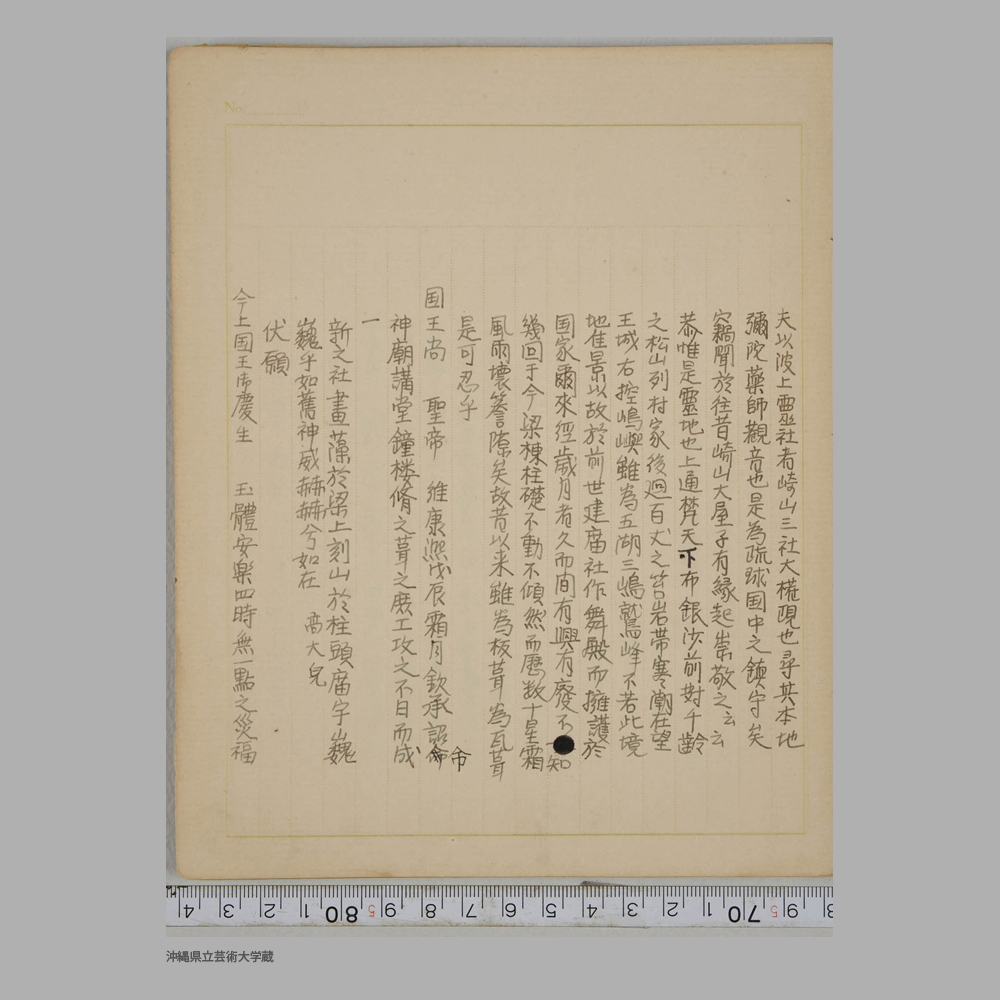 夫以波上靈社者崎山三社大権現也尋其本地
彌陀藥師觀音也是為琉球国中之鎮守矣
竊聞於往昔崎山大屋子有縁起崇敬之云云
恭惟是靈地也上通梵天下布銀沙前対千齡
之松山列村家後廻百丈之苔岩帯寒潮在望
王城右控嶋嶼雖為五湖三嶋鷲峰不若此境
地佳景以故於前世建廟社作舞殿而擁護於
国家爾来経歳月者久而間有興有廢不知
幾回于今梁棟柱礎不動不傾然而歴数十星霜
風雨壊簷隙矣故昔以来雖為板葺為瓦葺
是可忍乎
国王尚 聖帝 維康熈戊辰霜月欽承詔命
神廟講堂鐘楼脩之葺之庶工攻之不日而成
一
新之社畫藻於梁上刻山於柱頭廟宇巍
巍乎如舊神威赫赫兮如在 高大皃
伏願
今上国王帝慶生 玉體安樂四時無一點之災福
No.
4 3 2 1 80 9 8 7 6 5 4 3 2 1 70 9 8
沖縄県立芸術大学蔵